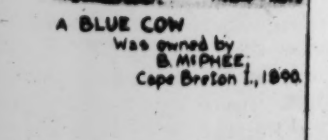 A BLUE COW
Was owned by
B. McPHEE,
Cape Breton I., 1890.